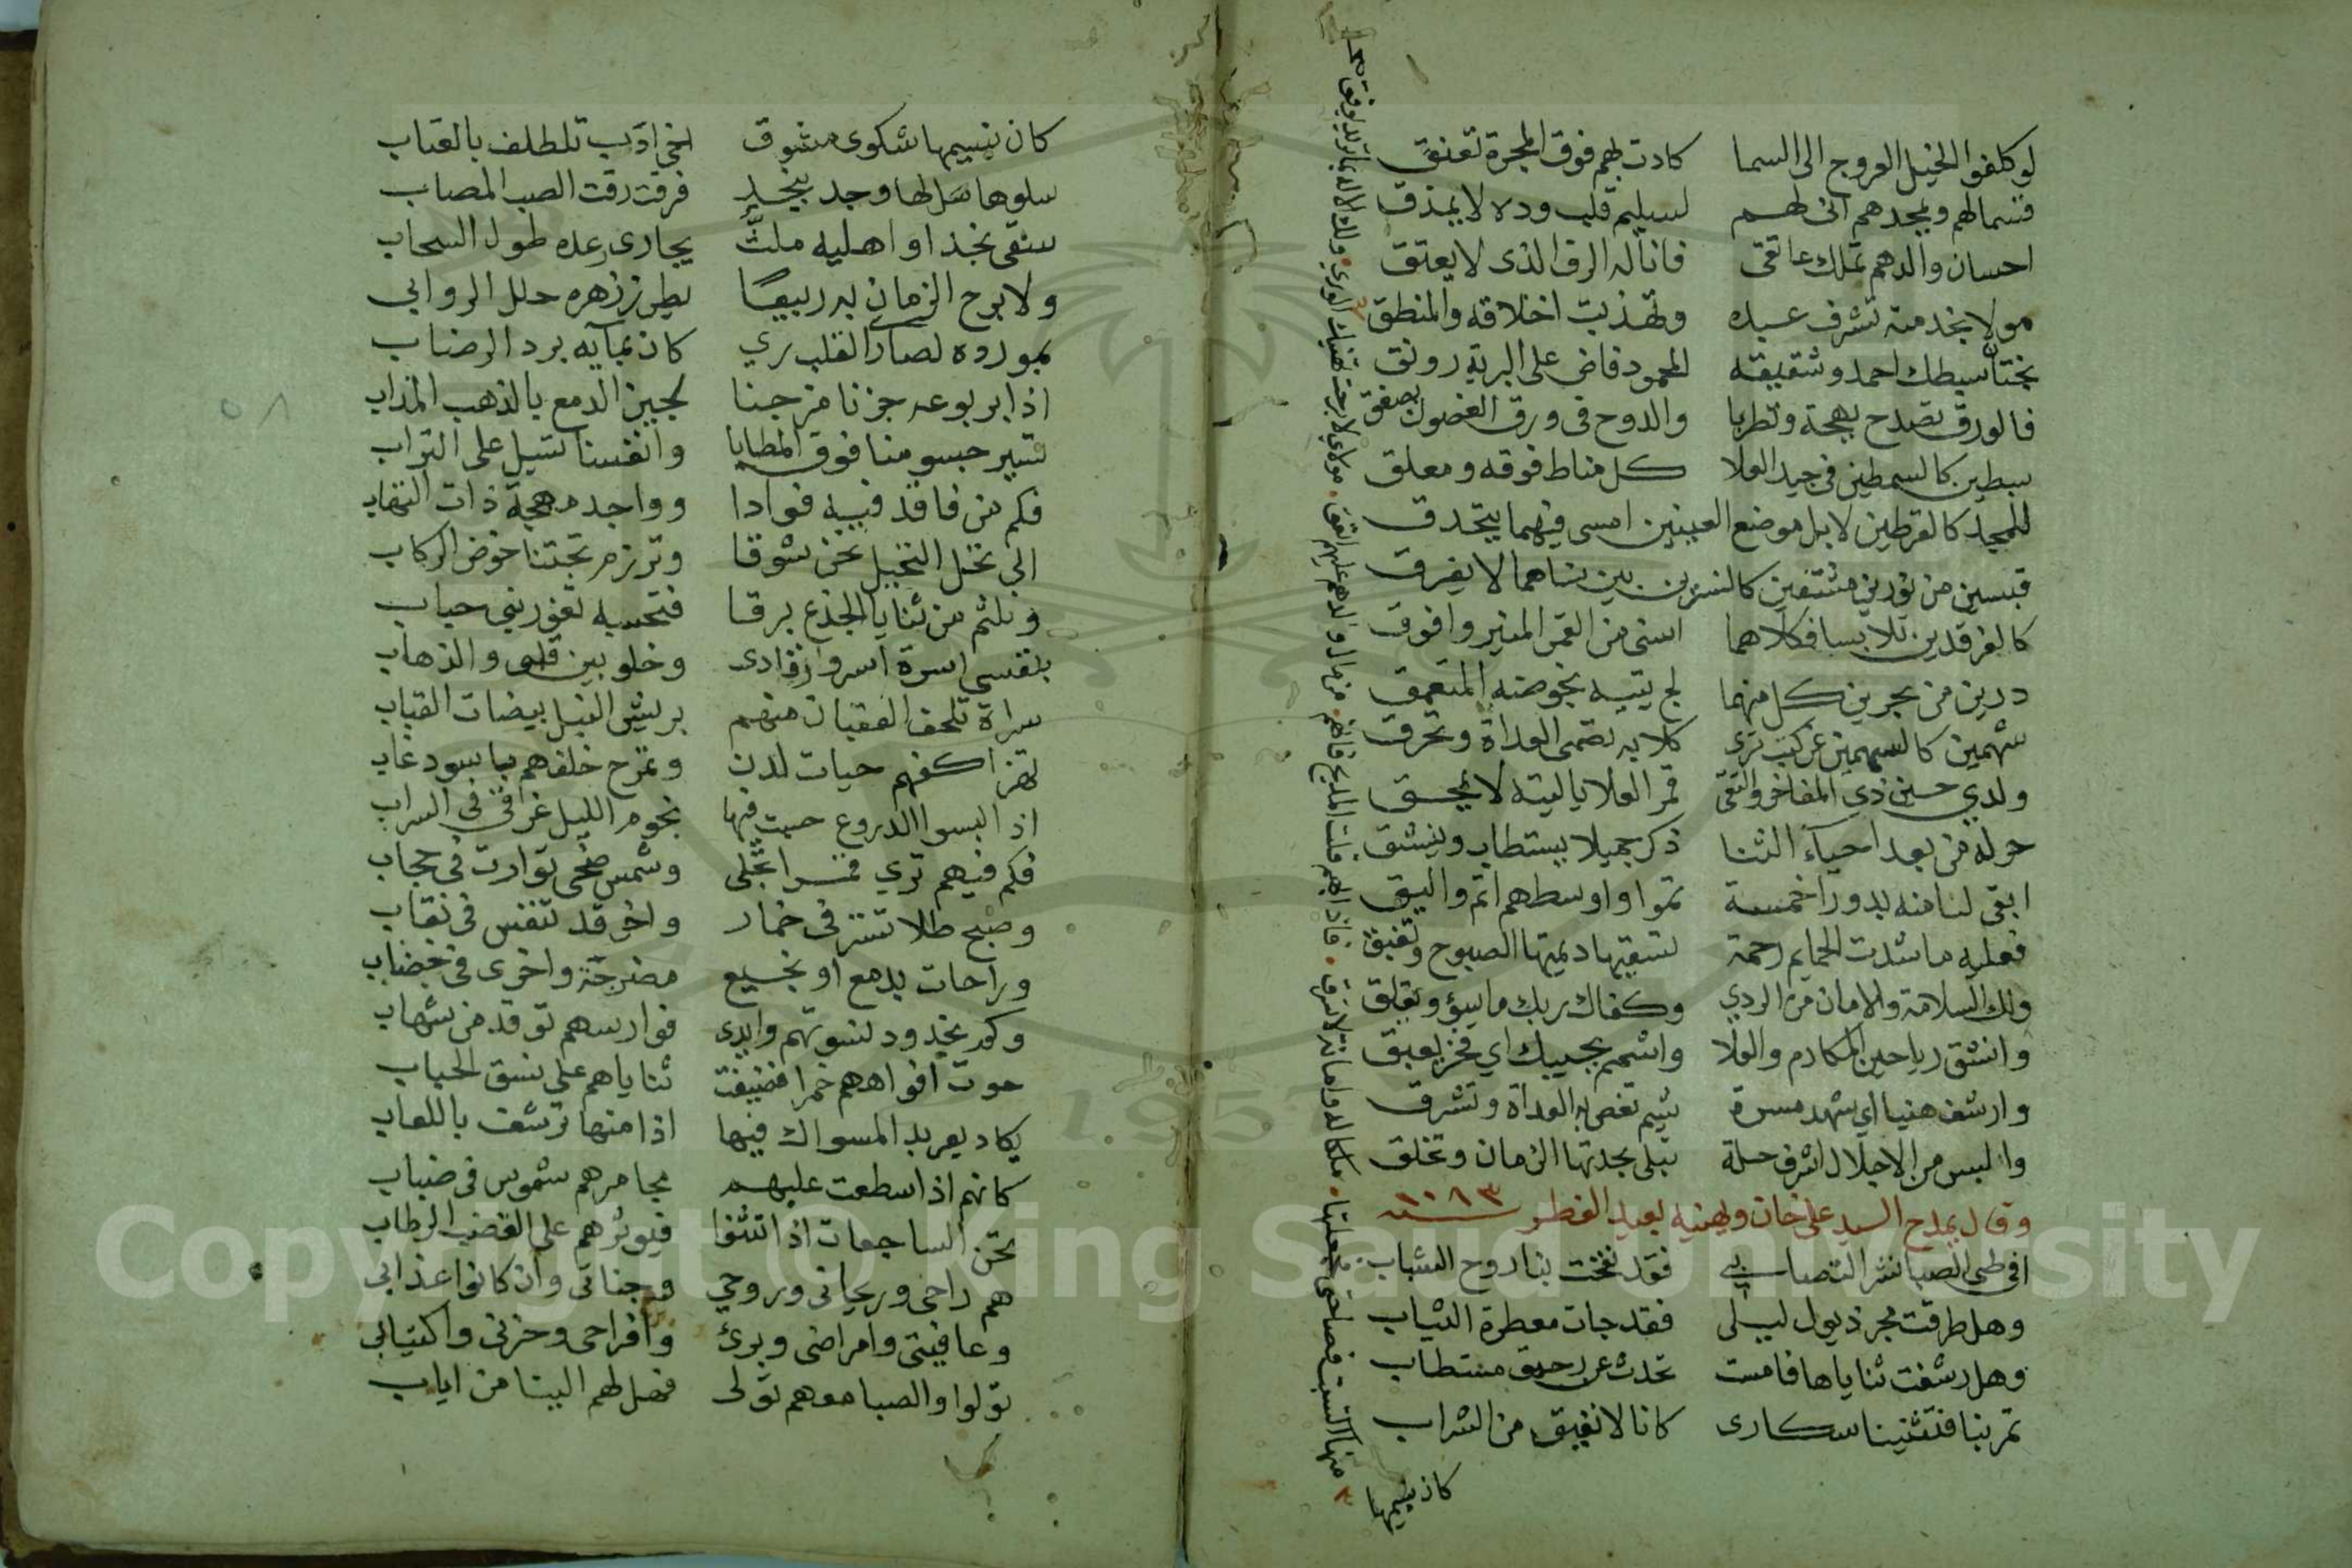 لو كلفوا الخيل العروج الى السما كادت بهم فوق المجرة تعنق
قسما لهم وبمجدهم انى لهم لسليم قلب وده لا يمذق
احسان والدهم تملك عاتقى فانا له الرق الذى لا يعتق
مولا بخدمته تشرف عبده وتهذبت اخلاقه والمنطق
بختان سبطك احمد وشقيقه المحمود فاض على البرية رونق
فالورق تصدح بهجة وتطربا والدوح فى ورق الغصون يصفق
سبطين كالسمطين فى جيد العلا كل مناط فوقه ومعلق
للمجد كالقرطين لا بل موضع العينين امسى فيهما يتحدق
قبسين من نورين مشتقين كالنسرين بين سناهما لا يفرق
كالفرقدين تلابسا فكلاهما اسنى من القمر المنير وافوق
درين من بحرين كل منهما لج يتيه بخوضه المتعمق
سهمين كالسهمين عن كثب ترى كلا به تصمى العداة وتحرق
ولدي حسين ذي المفاخر والتقى قمر العلا ياليته لا يمحق
حر له من بعد احيآء الثنا ذكر جميلا يستطاب وينشق
ابقى لنا منه بدورا خمسة تموا واوسطهم اتم واليق
فعليه ما شدت الحمايم رحمة تسقيها ديمتها الصبوح وتغبق
ولك السلامة والامان من الردي وكفاك ربك ما يسؤ ويقلق
وانشق رياحين المكارم والعلا واشمم بجيبك اي فخر يعبق
وارشف هنيا اي شهد مسرة شيم تغص به العداة وتشرق
والبس من الاجلال اشرف حلة تبلى بجدتها الزمان وتخلق
وقال يمدح السيد علي خان ويهنيه بعيد الفطر سنة ١٠٨٣
افى طي الصبا نشر التصابي فقد نفخت بنا روح الشباب
وهل طرقت مجر ذيول ليلى فقد جات معطرة الثياب
وهل رشفت ثناياها فامست تحدث عن رحيق مستطاب
تمر بنا فتثنينا سكارى كانا لا نفيق من الشراب
كان نسيمها
كان نسيمها شكوى مشوق اخي ادب تلطف بالعتاب
سلوها هل لها وجد بنجد فرقت رقت الصب المصاب
سقى نجدا واهليه ملث يجارى رعده طول السحاب
ولا برح الزمان به ربيعا يطرز زهره حلل الروابي
بمورده لصادي القلب ري كان بمآيه برد الرضاب
اذا بربوعه جزنا مزجنا لجين الدمع بالذهب المذاب
تسير جسومنا فوق المطايا وانفسنا تسيل على التراب
فكم من فاقد فيه فوادا وواجد مهجة ذات التهاب
الى نخل النخيل نحن شوقا وترزم تحتنا خوض الركاب
ونلثم من ثنايا الجذع برقا فتحسبه ثغور بني حباب
بنفسي اسرة اسروا رقادى وخلو بين قلبى والذهاب
سراة تلحف العقبان منهم بريش النبل بيضات القباب
تهز اكفهم حيات لدن وتمرح خلفهم باسود غاب
اذا لبسوا الدروع حسبت فيها نجوم الليل غرقى فى السراب
فكم فيهم ترى قمرا تجلى وشمس ضحى توارت فى حجاب
وصبح طلا تستر فى خمار واخر قد تنفس فى نقاب
وراحات بدمع او نجيع مضرجة واخرى فى خضاب
وكم بخدود نسوتهم وايدى فوارسهم توقد من شهاب
حوت افواههم خمرا فضيفت ثناياهم على نسق الحباب
يكاد يعربد المسواك فيها اذا منها ترشف باللعاب
كانهم اذا سطعت عليهم مجامرهم شموس فى ضباب
تحن الساجعات اذا تثنوا فيوثرهم على القضب الرطاب
هم راحى وريحانى وروحي وجناتى وان كانوا عذابى
وعافيتى وامراضى وبرئ وافراحى وحزنى واكتيابى
تولوا والصبا معهم تولى فهل لهم الينا من اياب
Copyright © King Saud University
1957